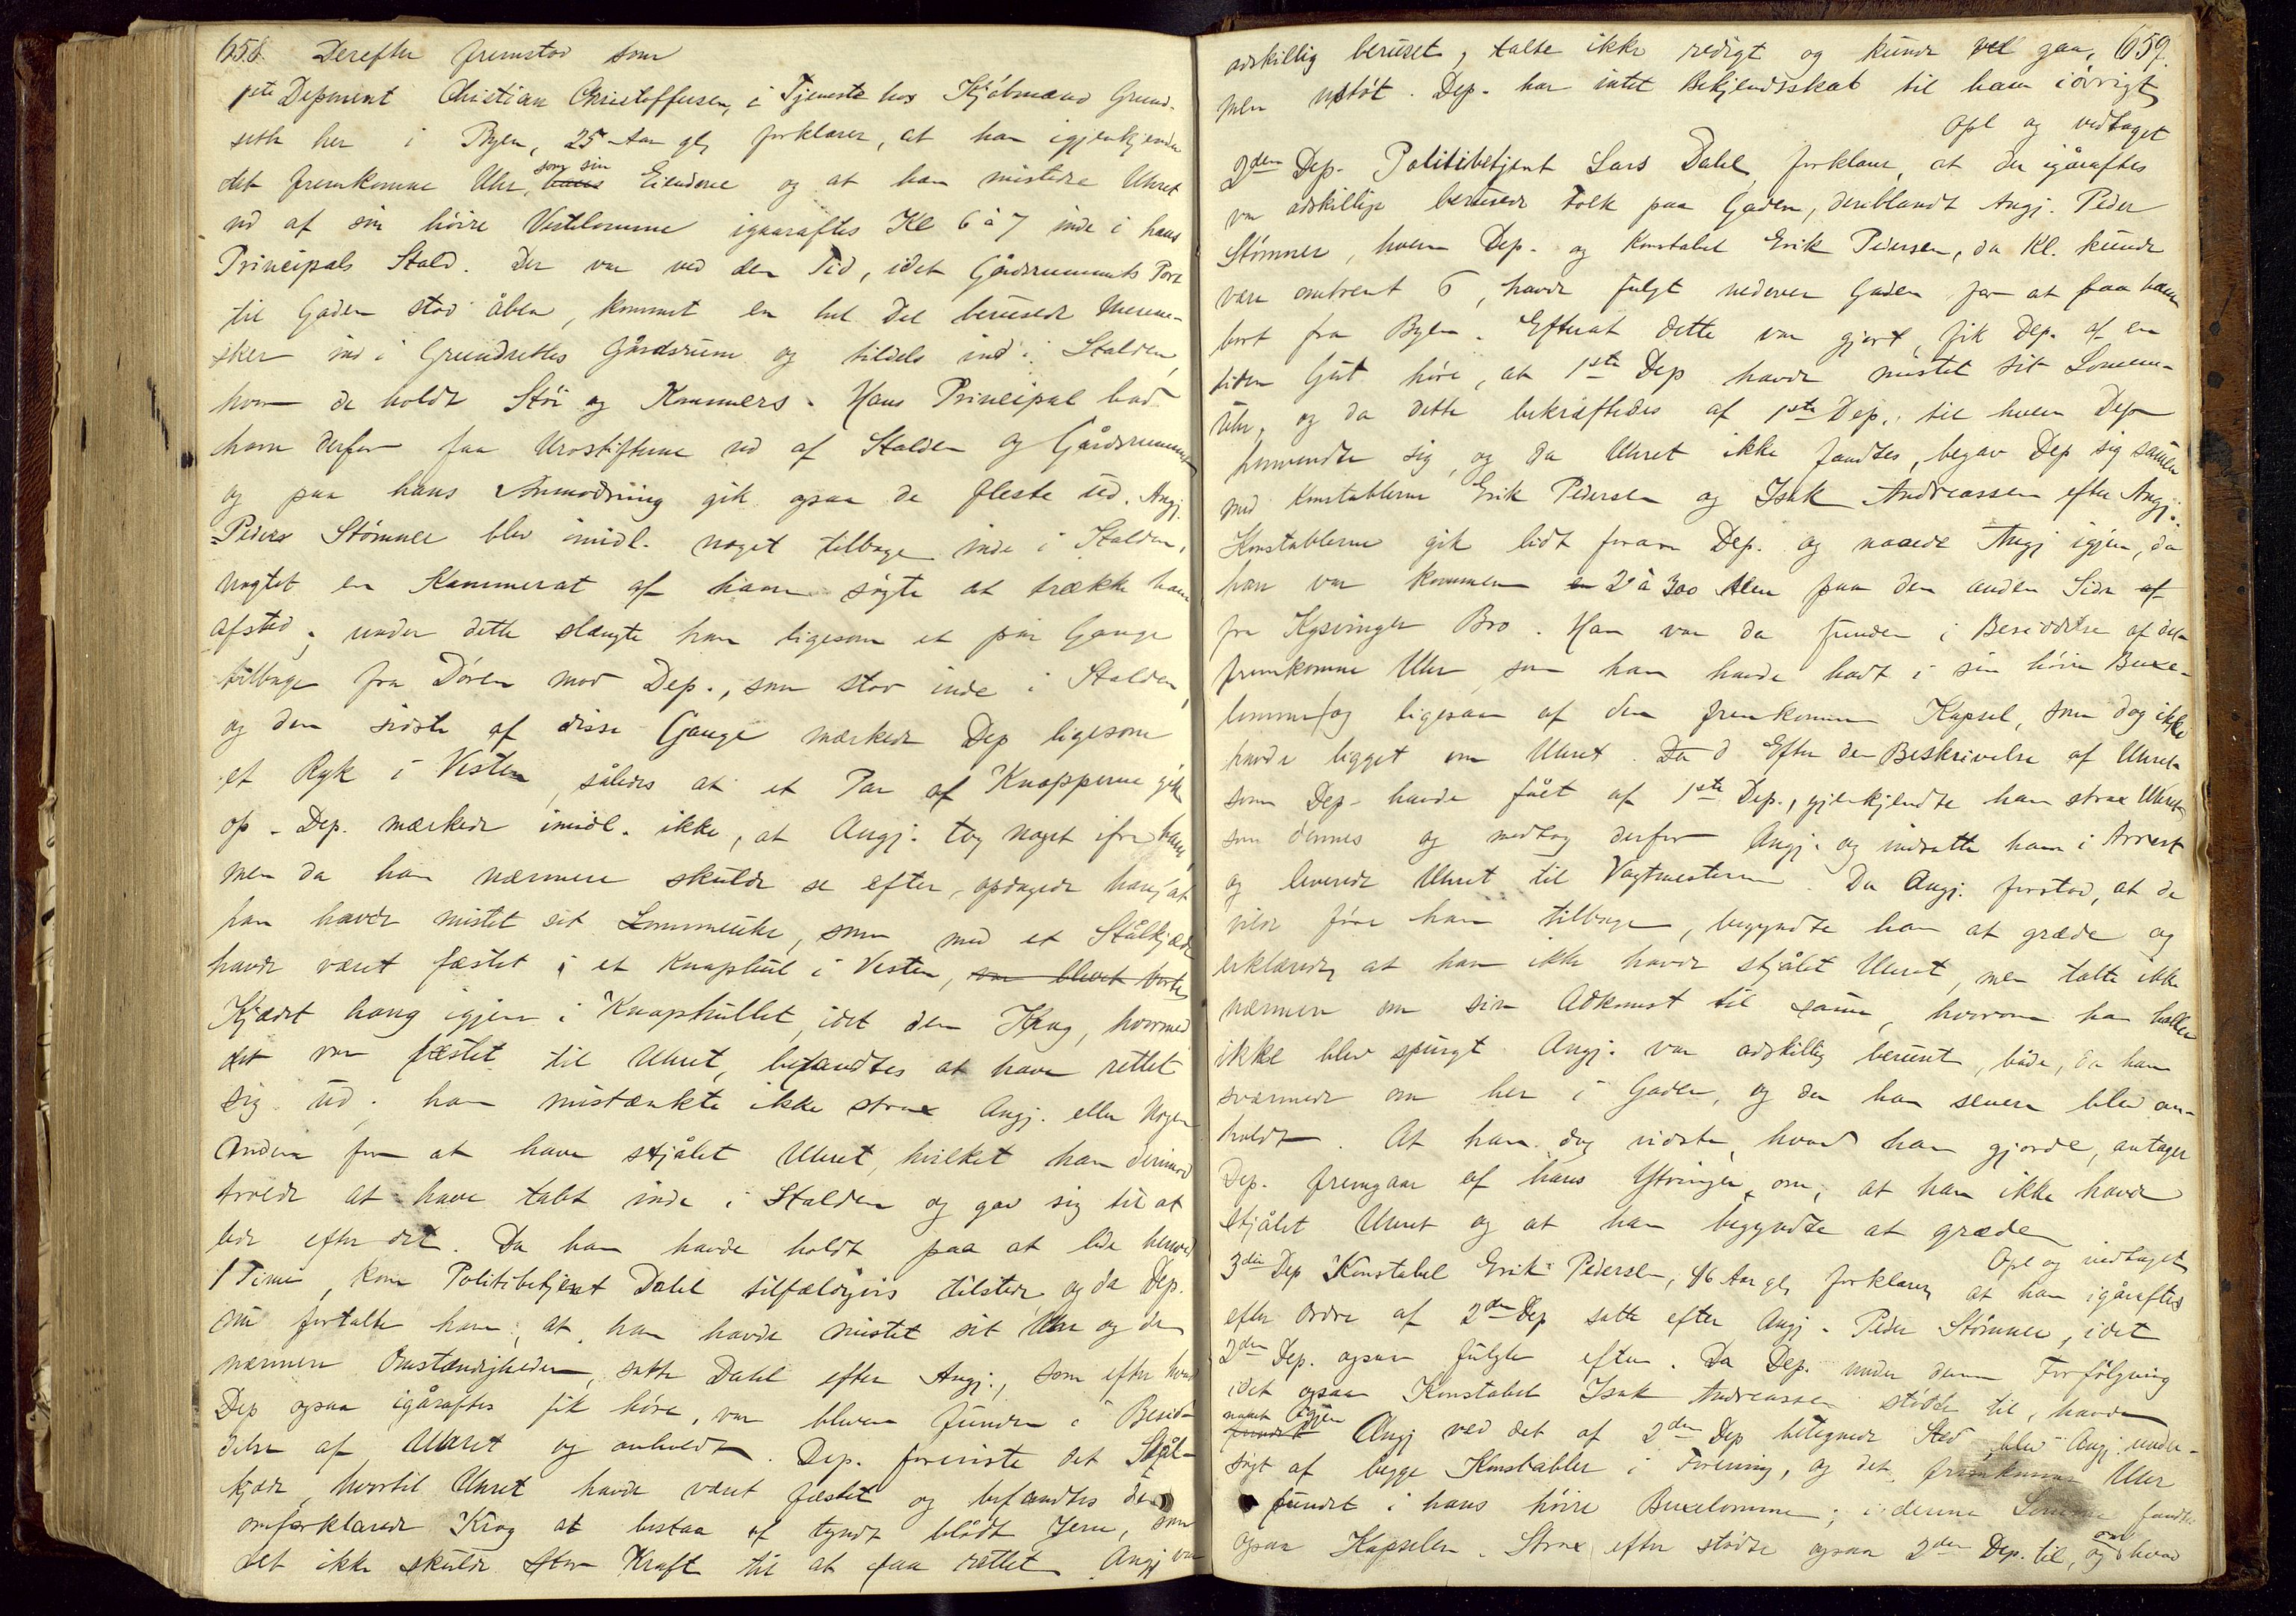 658. Derefter fremstod som
1ste Deponent Christian Christoffersen, i Tjeneste hos Kjöbmand Grund-
seth her i Byen, 25 Aar gl, forklarer, at han igjenkjender
det fremkomne Uhr, hans som sin Eiendom og at han mistede Uhret
ud af sin höire Vestelomme igaaraftes Kl 6 à 7 inde i hans
Principals Stald. Der var ved den Tid, idet Gårdsrummets Port
til Gaden stod åben, kommet en hel Del berusede Menne-
sker ind i Grundsethes Gårdsrum og tildels ind i Stalden,
hvor de holdt Stöi og Kommers. Hans Principal bad
ham derfor faa Urostifterne ud af Stalden og Gårdsrummet
og paa hans Anmodning gik ogsaa de fleste ud. Angj.
Peder Stömner blev imidl. noget tilbage inde i Stalden,
uagtet en Kammerat af ham sögte at trække ham
afsted; under dette slængte han ligesom et pår Gange
tilbage fra Dören mod Dep., som stod inde i Stalden,
og den sidste af disse Gange mærkede Dep ligesom
et Ryk i Vesten, således at et Par af Knapperne gik
op. Dep. mærkede imidl. ikke, at Angj. tog noget ifra ham,
men da han nærmere skulde se efter, opdagede han, at
han havde mistet sit Lommeuhr, som med et Stålkjæde
havde været fæstet i et Knaphul i Vesten, var blevet borte
Kjædet hang igjen i Knaphullet, idet den Krog, hvormed
det var fæstet til Uhret, befandtes at have rettet
sig ud; han mistænkte ikke strax Angj. eller Nogen
Anden for at have stjålet Uhret, hvilket han derimod
troede at have tabt inde i Stalden og gav sig til at
lede efter det. Da han havde holdt paa at lede henved
1 Time, kom Politibetjent Dahl tilfældigvis tilstede, og da Dep.
nu fortalte ham, at han havde mistet sit Uhr og de
nærmere Omstændigheder, satte Dahl efter Angj., som efter hvad
Dep ogsaa igåraftes fik höre, var bleven funden i Besid-
delse af Uhret og anholdt. Dep. foreviste det Stål-
kjæde, hvortil Uhret havde været fæstet og befandtes den
omforklarede Krog at bestaa af tyndt blödt Jern, som
det ikke skulde stor Kraft til at faa rettet. Angj var
659.
adskillig beruset, talte ikke redigt og kunde vel gaa,
men ustöt. Dep. har intet Bekjendsskab til ham iövrigt
Opl og vedtaget
2den Dep. Politibetjent Lars Dahl, forklarer, at der igåraftes
var adskillige berusede Folk paa Gaden, deriblandt Angj. Peder
Stömner, hvem Dep. og Konstabel Erik Pedersen, da Kl. kunde
være omtrent 6, havde fulgt nedover Gaden for at faa ham
bort fra Byen. Efterat dette var gjort, fik Dep. af en
liden Gut höre, at 1ste Dep havde mistet sit Lomme-
Uhr, og da dette bekræftedes af 1ste Dep., til hvem Dep
henvendte sig, og da Uhret ikke fandtes, begav Dep sig sammen
med Konstablerne Erik Pedersen og Isak Andreassen efter Angj.
Konstablerne gik lidt foran Dep. og naaede Angj igjen, da
han var kommen en 2 à 300 Alen paa den anden Side af
fra Kysvingen Bro. Han var da funden i Besiddelse af det
fremkomne Uhr, som han havde havt i sin höire Buxe-
lomme, og ligesaa af den fremkomne Kapsel, som dog ikke
havde ligget om Uhret. Da d Efter den Beskrivelse af Uhret
som Dep. havde fået af 1ste Dep., gjenkjendte han strax Uhret
som dennes og medtog derfor Angj. og indsatte ham i Arrest
og leverede Uhret til Vagtmesteren. Da Angj. forstod, at de
vilde före ham tilbage, begyndte han at græde og
erklærede, at han ikke havde stjålet Uhret, men talte ikke
nærmere om sin Adkomst til samme, hvorom han heller
ikke blev spurgt. Angj. var adskillig beruset, både, da han
sværmede om her i Gaden, og da han senere blev an-
holdt. At han dog vidste, hvad han gjorde, antager
Dep. fremgaar af hans Ytringer om, at han ikke havde
stjålet Uhret og at han begyndte at græde
Opl og vedtaget
3die Dep Konstabel Erik Pedersen, 46 Aar gl, forklarer, at han igåraftes
efter Ordre af 2den Dep satte efter Angj. Peder Stömner, idet
2den Dep. ogsaa fulgte efter. Da Dep. under denne Forfölgning
idet ogsaa Konstabel Isak Andreassen stödte til, havde
fundet naaet igjen Angj ved det af 2den Dep betegnede Sted, blev Angj. under-
sögt af begge Konstabler i Forening, og det fremkomne Uhr
fundet i hans höire Buxelomme; i denne Lomme fandtes
ogsaa Kapselen. Strax efter stödte ogsaa 2den Dep. til, og om hvad